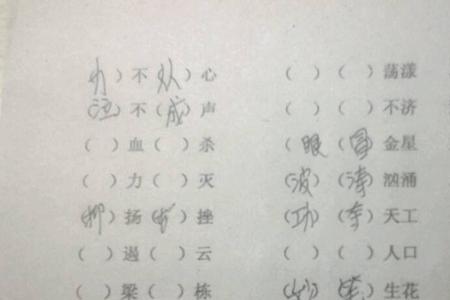 力）不（从）心 （ ）（ ）荡漾
（泣）不（成）声 （ ）（ ）不济
（ ）血（ ）杀 （眼（冒）金星
（ ）力（ ）灭 （波）（涛）汹涌
（抑）扬（ ）挫 （功）（夺）天工
（ ）遏（ ）云 （ ）（ ）人口
（ ）梁（ ）栋 （妙）（笔）生花